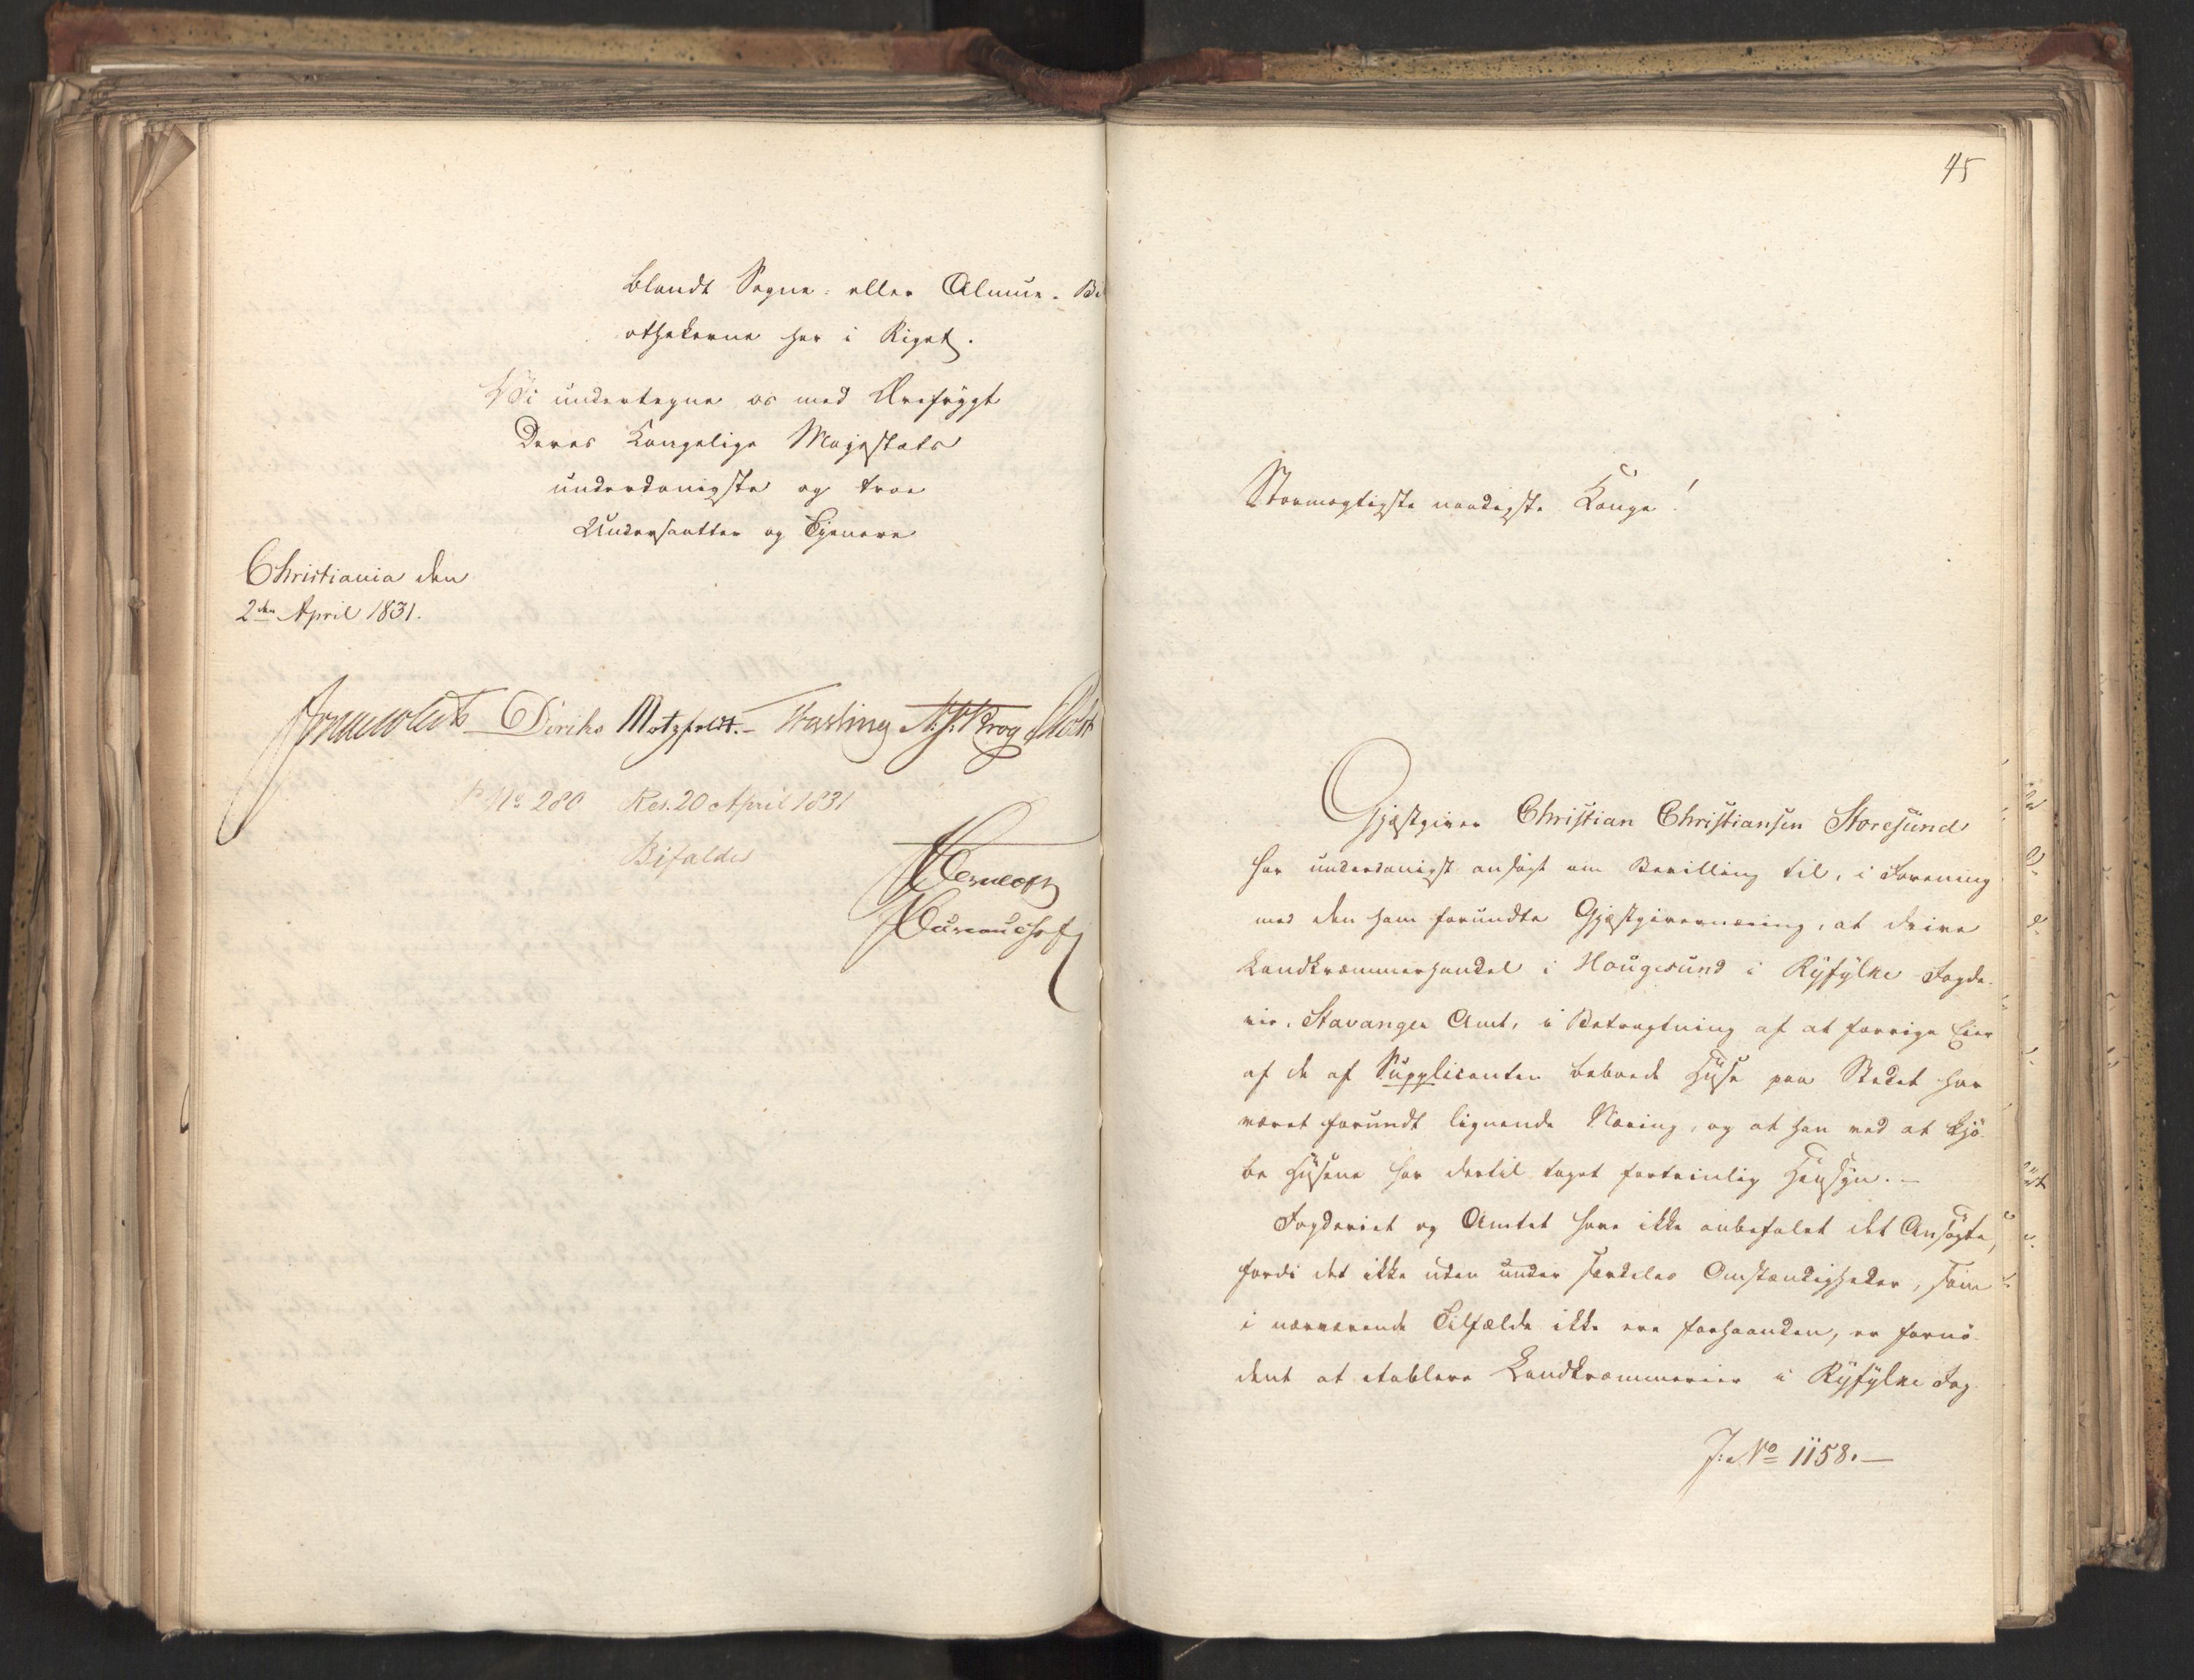 blandt Sogne- eller Almue-Bi
othekerne her i Riget.
Vi undertegne os med Ærefrygt
Deres Kongelige Majestæts
underdanigste og troe
Undersaatter og Tjenere
Christiania den
2den April 1831.
Diriks Motzfeldt. Fasting A: Krog Holst
No 280 Res. 20 April 1831
Bifaldes
45
Stormægtigste naadigste Konge!
Gjæstgiver Christian Christiansen Storesund
har underdanigst ansøgt om Bevilling til, i Forening
med den ham forundte Gjæstgivernæring, at drive
Landkræmmerhandel i Hougesund i Ryfylke Fogde-
rie, Stavanger Amt, i Betragtning af at forrige Eier
af de af Supplicanten beboede Huse paa Stedet har
været forundt lignende Næring, og at han ved at kjø-
be Husene har dertil taget fortrinlig Hensyn.—
Fogderiet og Amtet have ikke anbefalet det Ansøgte,
fordi det ikke uden under særdeles Omstændigheder, som
i nærværende Tilfælde ikke ere forhaanden, er fornø-
dent at etablere Landkræmmerier i Ryfylke Fog-
J: No 1158.—